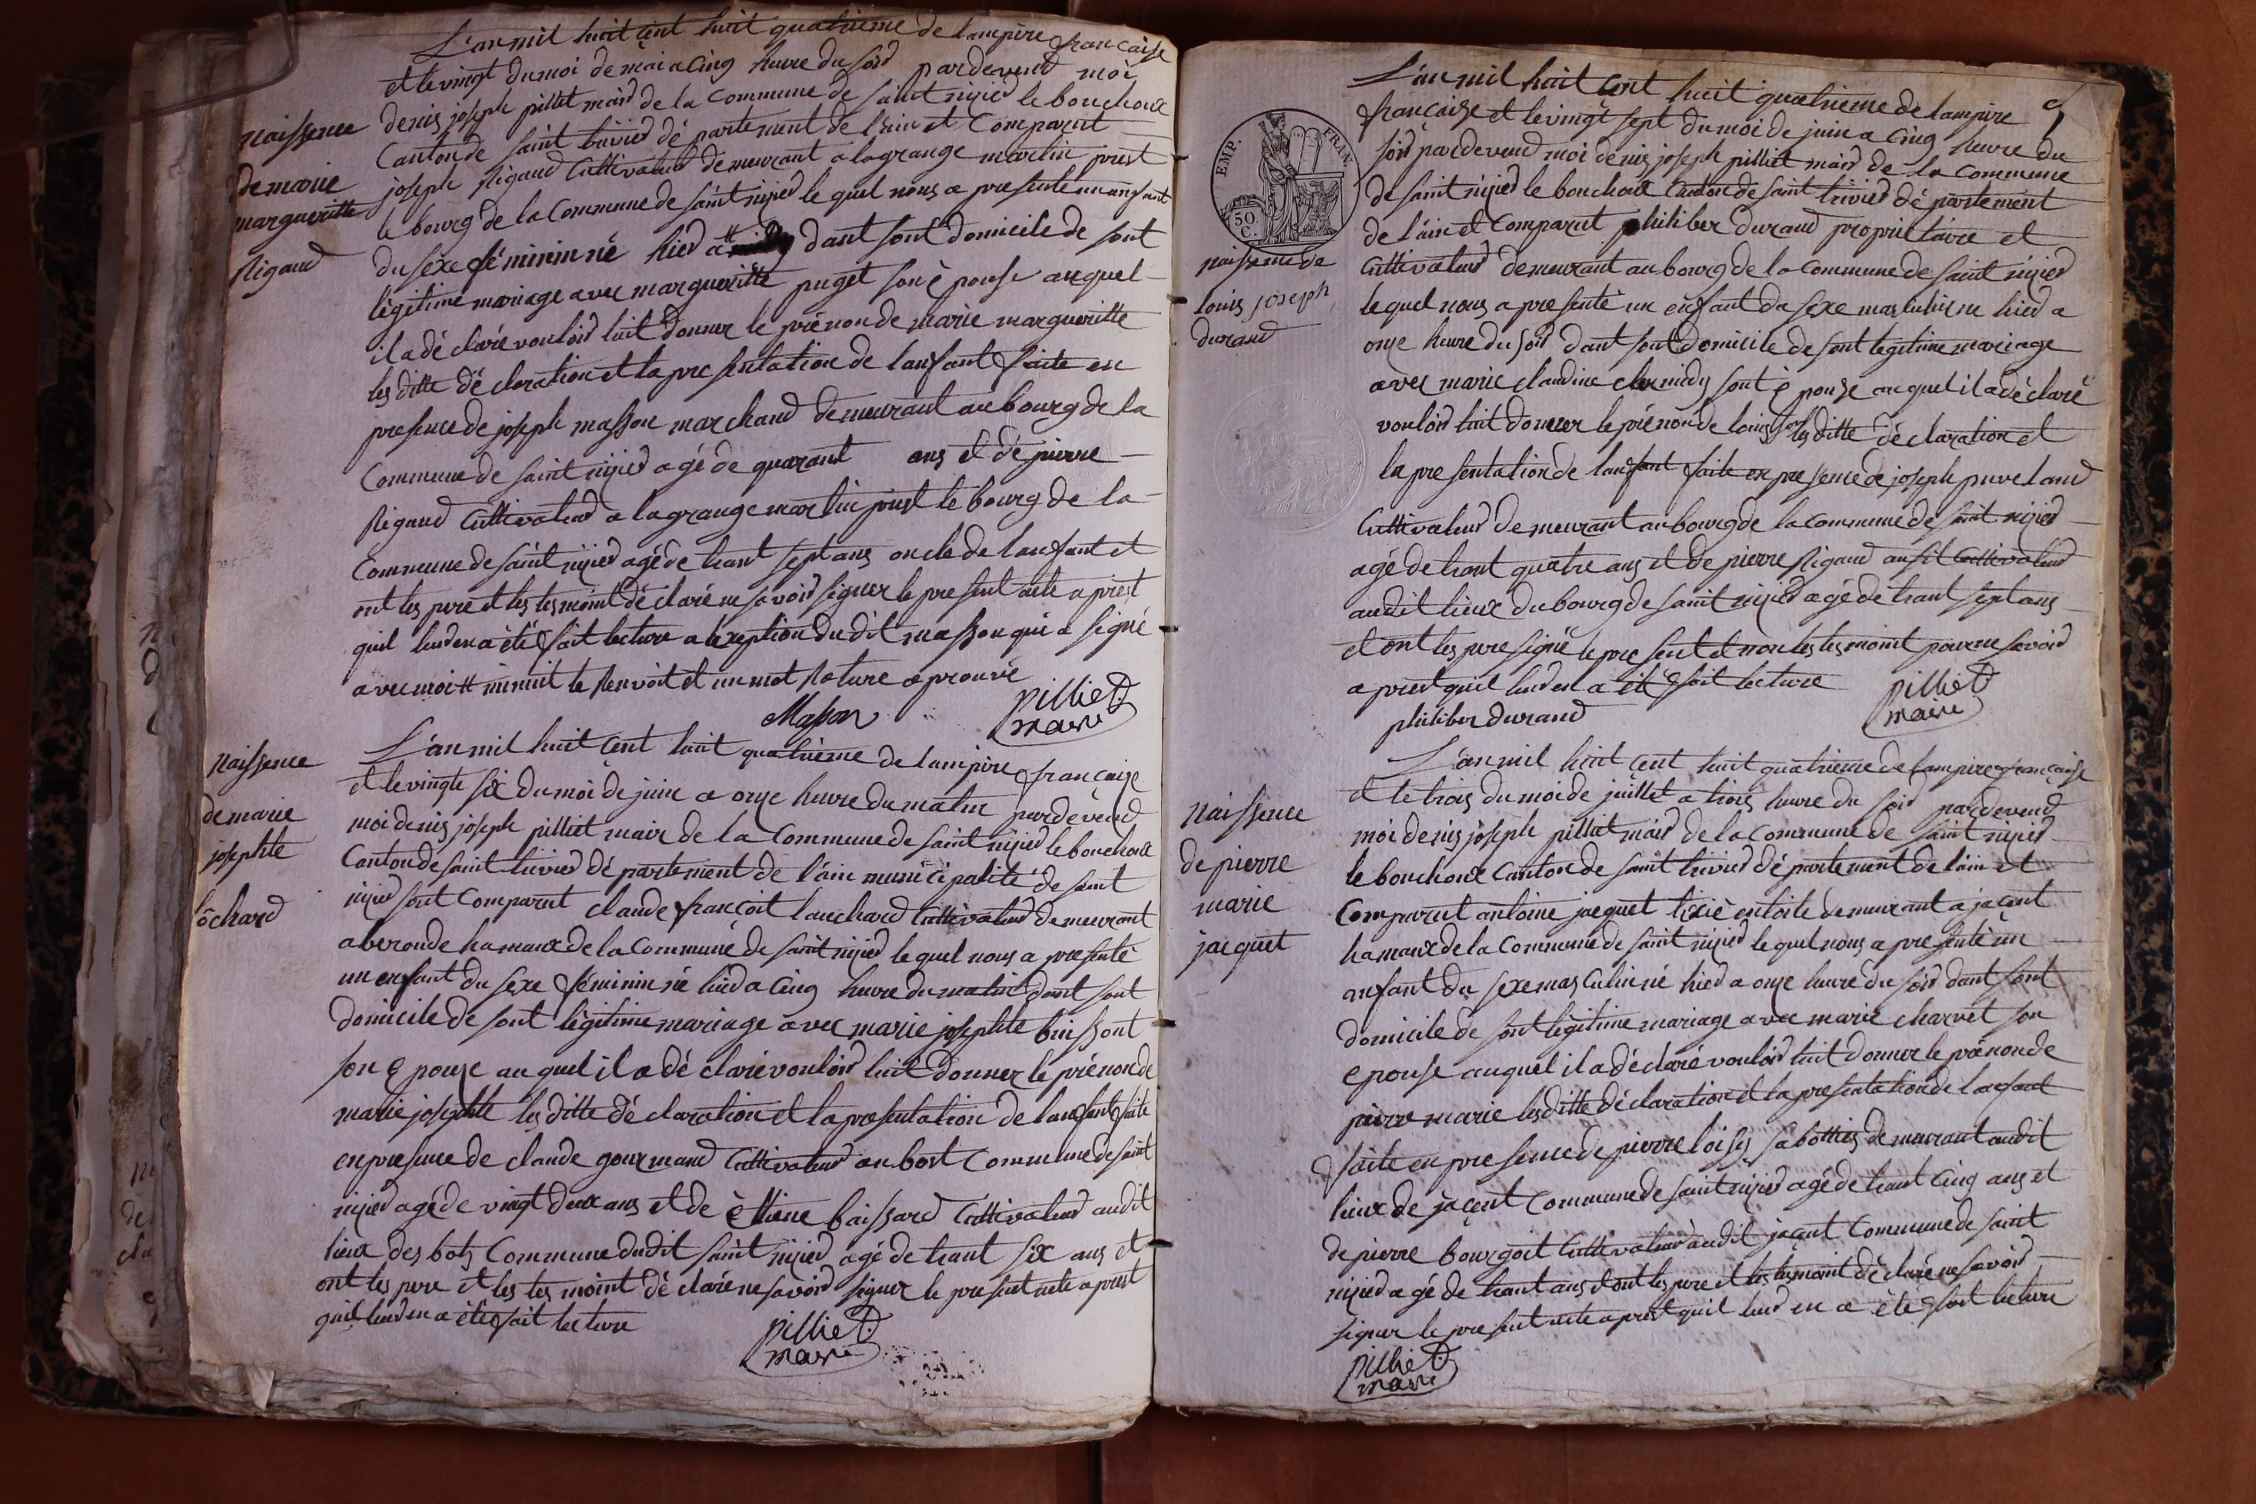 L'an mil huit cent huit quatrieme de lampire française
et le vingt du moi de mai a cinq heure du soid pardevend moi
denis joseph pilliet maid de la commune de saint nijied le bouchoux
canton de saint trivied dé partement de l'ain et comparut
joseph Rigaud cultivateud demeurant a lagrange marlin prest
le bourg de la commune de saint nijied le quel nous a presenté un anfant
du sexe féminin né hied a # dant sont domicile de sont
légitime mariage avec margueritte puget son épouse auquel
il a dé claré vouloid luit donner le prénon de marie margueritte
les ditte dé claration et la presentation de lanfant faite en
presence de joseph masson marchand demeurant au bourg de la
commune de saint nijied agé de quarant ans et dé pierre
Rigaud cultivateud a lagrange marlin prest le bourg de la
commune de saint nijied agé de trant sept ans oncle de lanfant et
ont les pere et les tesmoint dé claré ne savoid signer le present acte a prest
quil leud en a été fait lecture a lexeption du dit masson qui a signé
avec moi # minuit le Renvoit et un mot Rature aprouvé
Masson
pilliet
maire
naissence
de marie
margueritte
Rigaud
L'an mil huit cent huit quatrième de lampire française
et le vingte six du moi de juin a onze heure du matin pardevend
moi denis joseph pilliet maire de la commune de saint nijied le bouchoux
canton de saint trivied dé partement de l'ain municipalité de saint
nijied sont comparut claude françoit lauchard cultivateud demeurant
a beronde hamaux de la commune de saint nijied le quel nous a presenté
un enfant du sexe féminin né hied a cinq heure du matin dant sont
domicile de sont légitime mariage avec marie josephte buissont
son épouse au quel il a dé claré vouloid luit donner le prénon de
marie josephte les ditte dé claration et la presentation de lanfant faite
en presence de claude gourmand cultivateud au bost commune de saint
nijied agé de vingt deux ans et de étiene baissard cultivateud audit
lieux des bots commune dudit saint nijied agé de trant six ans et
ont les pere et les tes moint dé claré ne savoid signer le present acte a prest
quil leud en a été fait lecture
pilliet
maire
naissence
de marie
josephte
lôchard
L'an mil huit cent huit quatrieme de lampire
française et le vingt sept du moi de juin a cinq heure du
soid pardevend moi denis joseph pilliet maid de la commune
de saint nijied le bouchoux canton de saint trivied dé partement
de l'ain et comparut philiber durand proprietaire et
cultivateud demeurant au bourg de la commune de saint nijied
le quel nous a presenté un enfant du sexe masculin ne hied a
onze heure du soid dant sont domicile de sont legitime mariage
avec marie claudine sont épouse au quel il a déclaré
vouloid luit donner le prénon de louis les ditte déclaration et
la presentation de lanfant faite en presence de joseph puveland
cultivateud demeurant au bourg de la commune de saint nijied
agé de trant quatre ans et de pierre Rigaud ausit cultivateud
audit lieux du bourg de saint nijied agé de trant sept ans
et ont les pere signé le present et non les tesmoint pour ne savoid
a prest quil leud en a été fait lecture
philiber durand
pilliet
maire
EMP. FRAN.
50 C.
naissence de
louis joseph
durand
L'an mil huit cent huit quatrieme de lampire française
et le trois du moi de juillet a trois heure du soid pardevend
moi denis joseph pilliet maid de la commune de saint nijied
le bouchoux canton de saint trivied dé partement de lain et
comparut antoine jacquet tixié en toile demeurant a jacent
hamaux de la commune de saint nijied le quel nous a presenté un
anfant du sexe masculin né hied a onze heure du soid dant sont
domicile de sont légitime mariage avec marie charvet son
epouse auquel il a déclaré vouloid luit donner le prénon de
pierre marie les ditte déclaration et la presentation de lanfant
faite en presence de pierre loisy sabottied demeurant audit
lieux de jaçent commune de saint nijied agé de trant cinq ans et
de pierre bourgoit cultivateud audit jaçent commune de saint
nijied agé de trant ans et ont les pere et les tesmoint dé claré ne savoid
signer le present acte a prest quil leud en a été fait lecture
pilliet
maire
naissence
de pierre
marie
jacquet